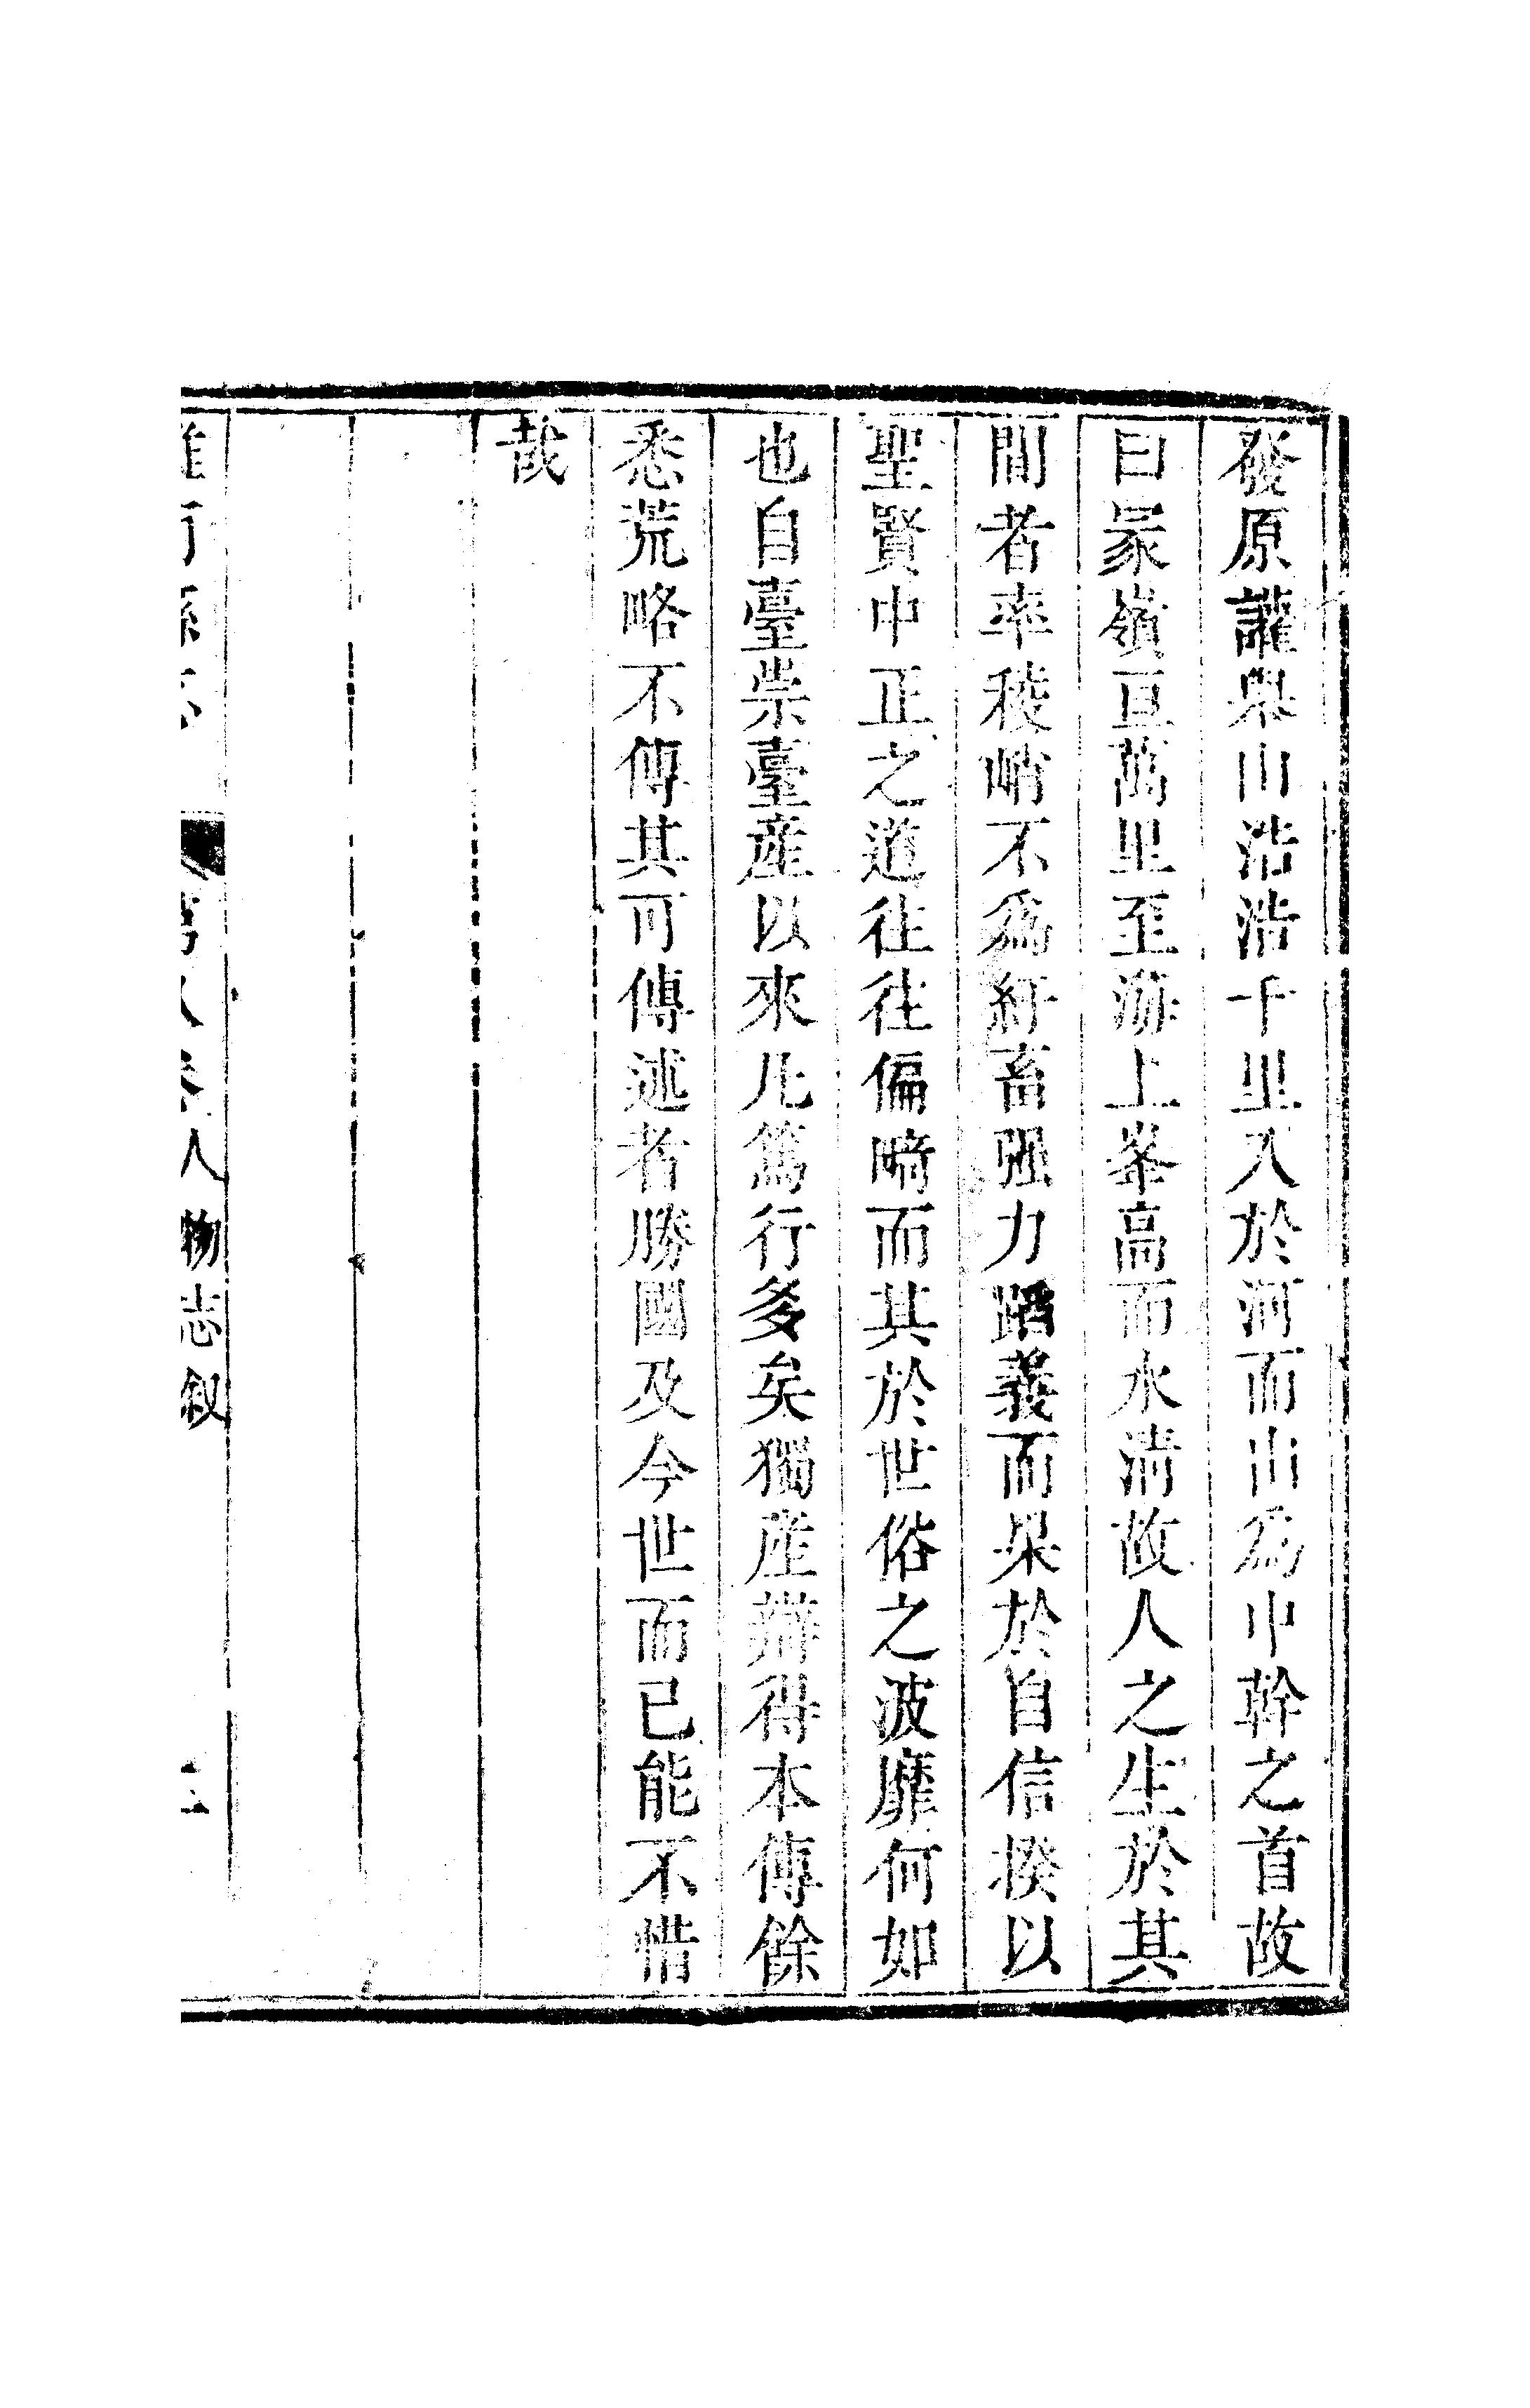 發原讙舉山浩浩千里入於河而山爲中幹之首故
曰冢嶺亘萬里至游上峯高而水淸故人之生於其
間者率稜峭不爲紆畜强力蹈義而杲於自信揆以
聖賢中正之道往往偏畸而其於世俗之波靡何如
也自臺崇臺產以來凡篤行多矣獨產辯得本傳餘
悉荒略不傳其可傳述者勝國及今世而已能不惜
哉
人物志叙